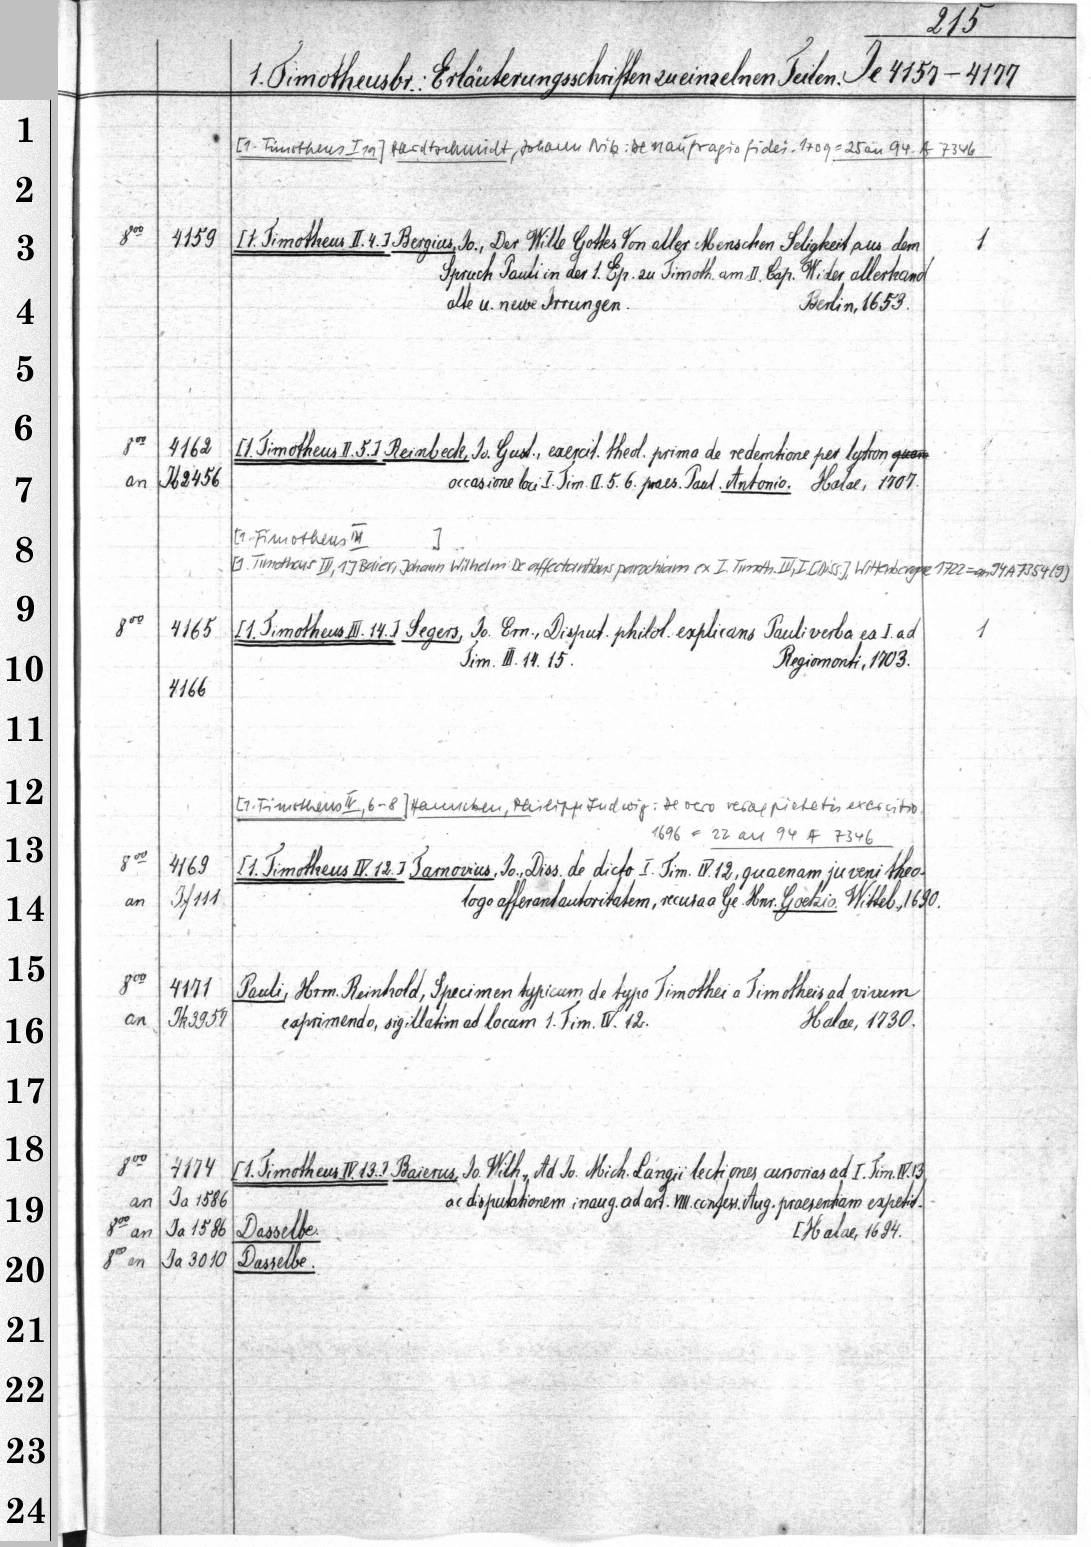 215
1. Timotheusbr.: Erläuterungsschriften zu einzelnen Teilen. Je 4157 – 4177
1
[1. Timotheus I 19] Hardtschmidt, Johann Nik: De naufragio fidei. 1709 = 25 an 94 A 7346
2
3 8⁰⁰ 4159 [1. Timotheus II. 4.] Bergius, Jo., Der Wille Gottes von aller Menschen Seligkeit, aus dem 1
Spruch Pauli in der 1. Ep. zu Timoth. am II. Cap. Wider allerhand
4 alte u. newe Irrungen. Berlin, 1653.
5
6 8⁰⁰ 4162 [1. Timotheus II. 5.] Reinbeck, Jo. Gust., exercit. theol. prima de redemtione per lytron quam
7 an Ib 2456 occasione loci I. Tim. II. 5. 6. praes. Paul. Antonio. Halae, 1707.
[1. Timotheus III ]
8 [1. Timotheus III, 1] Baier, Johann Wilhelm: De affectantibus parochiam ex I. Timoth. III, I [Diss.], Wittenbergae 1722 = an 94 A 7354 (9)
9 8⁰⁰ 4165 [1. Timotheus III. 14.] Segers, Jo. Ern., Disput. philol. explicans Pauli verba ex I. ad 1
10 Tim. III. 14. 15. Regiomonti, 1703.
4166
11
12 [1. Timotheus IV, 6-8] Hanneken, Philipp Ludwig: De vero verae pietatis exercitio
13 1696 = 22 an 94 A 7346
8⁰⁰ 4169 [1. Timotheus IV. 12.] Tarnovius, Jo., Diss. de dicto I. Tim. IV. 12, quaenam juveni theo-
14 an If 111 logo afferant autoritatem, recusa a Ge. Hnr. Goetzio. Witteb., 1690.
15 8⁰⁰ 4171 Pauli, Hrm. Reinhold, Specimen typicum de typo Timothei a Timotheis ad vivum
16 an Ih 3957 exprimendo, sigillatim ad locum 1. Tim. IV. 12. Halae, 1730.
17
18 8⁰⁰ 4174 [1. Timotheus IV. 13.] Baierus, Jo. Wilh., Ad Jo. Mich. Langii lectiones cursorias ad I. Tim. IV. 13
19 an Ia 1586 ac disputationem inaug. ad art. VIII. confess. Aug. praesentiam expetit.
8⁰⁰ an Ia 1586 Dasselbe. [Halae, 1694.
20 8⁰⁰ an Ia 3010 Dasselbe.
21
22
23
24